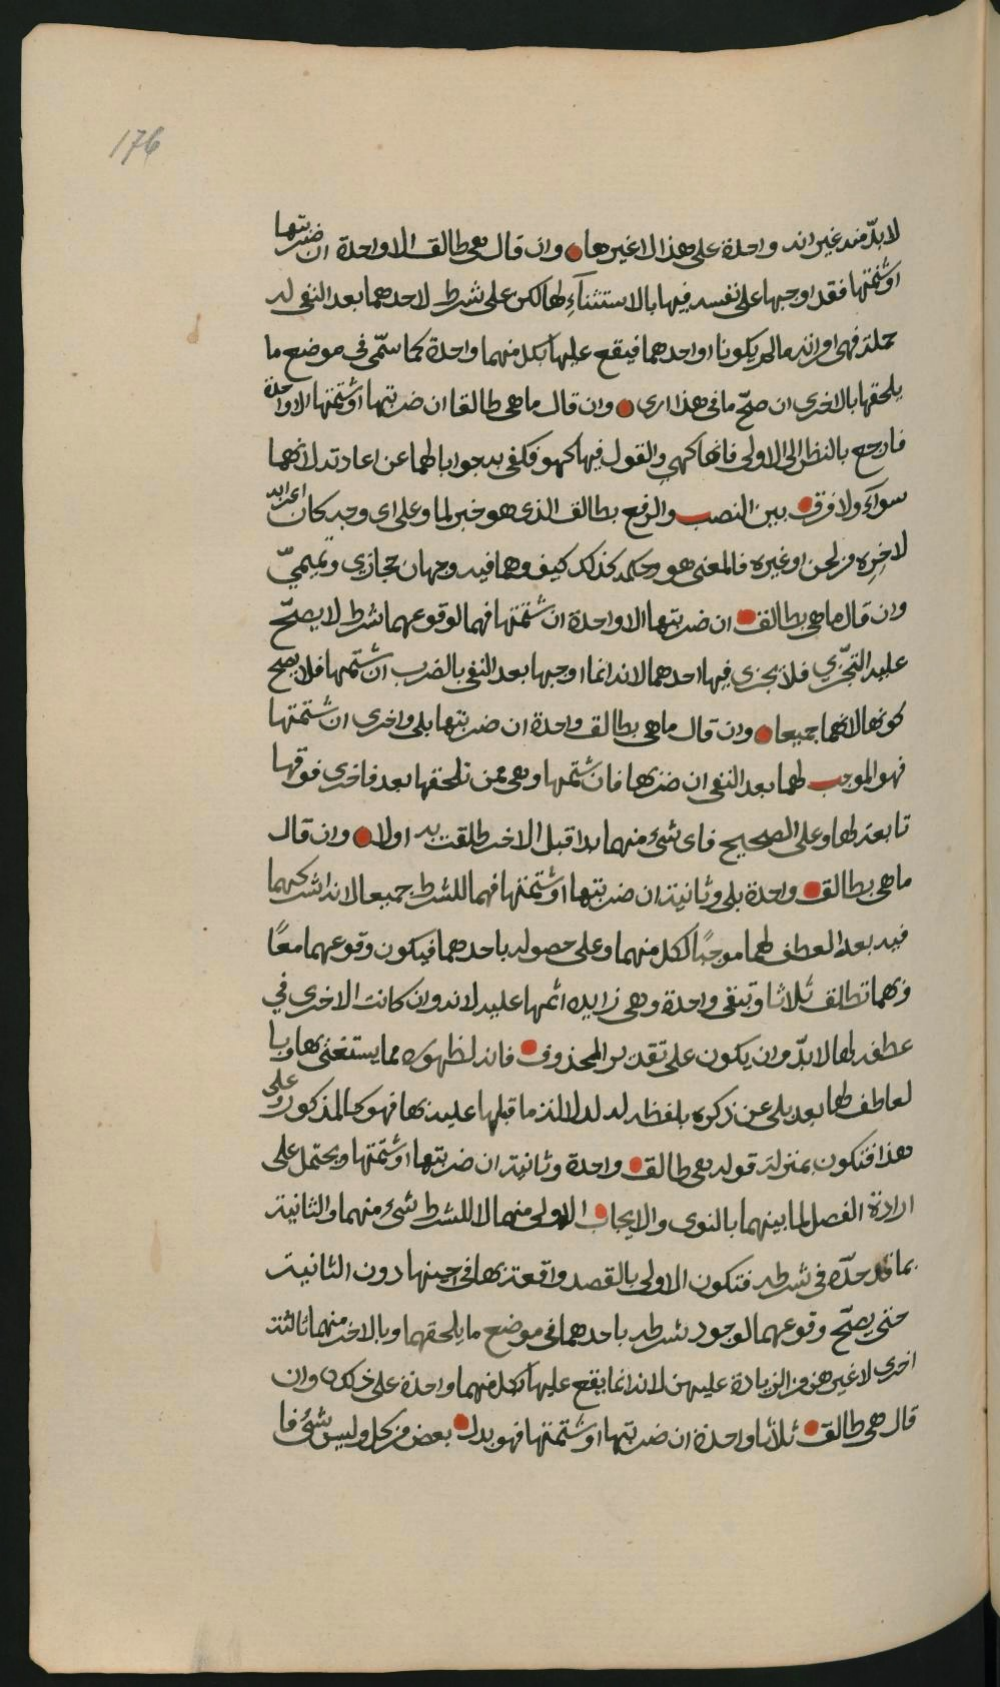 176
لا بدّ منه غيرانه واحدة على هذا لا غيرها وان قال هي طالق الا واحدة ان ضربتها
او شتمتها فقد اوجبها على نفسه فيها بالاستثناء لها لكن على شرط لاحدهما بعد النفي له
حملته فهي امرانه ما لم يكونا او احدهما فيقع عليها بكل منهما واحدة كما سمّى في موضع ما
يلحقها بالاخرى ان صحّ ما في هذا ارى وان قال ما هي طالقا ان ضربتها او شتمتها الا واحدة
فارجع بالنظر الى الاولى فانها كهي والقول فيها كهو فكفى به جوابا لها عن اعادته لانهما
سوآء ولا فرق بين النصب والرفع بطالق الذي هو خبر لما وعلى اي وجه كان اعرابه
لاخره من لحن او غيره فالمعنى هو وحكمه كذلك كيف وهما فيه وجهان حجازي وتميميّ
وان قال ما هي بطالق ان ضربتها الا واحدة ان شتمتها فهما لوقوعهما شرط لا يصحّ
عليه التجزّي فلا يجزي فيها احدهما لانه انما اوجبها بعد النفي بالضرب ان شتمها فلا يصح
كونها الا بهما جميعا وان قال ما هي بطالق واحدة ان ضربتها بلى واخرى ان شتمتها
فهو الموجب لهما بعد النفي ان ضربها فان شتمها وهي ممن تلحقها بعد فاخرى فوقها
تابعة لها وعلى الصحيح فاي شيء منهما بدا قبل الاخر طلقت به اولا وان قال
ما هي بطالق واحدة بلى وثانية ان ضربتها او شتمتها فهما للشرط جميعا لانه اشركهما
فيه بعد العطف لهما موجبًا لكل منهما وعلى حصوله باحدهما فيكون وقوعهما معًا
وبهما تطلق ثلاثا وتبقى واحدة وهي زايده اثمها عليه لانه وان كانت الاخرى في
عطفه لها لا بدّ وان يكون على تقدير المحذوف فانه لظهوره مما يستغنى بها وبا
لعاطف لها بعد بلى عن ذكره بلفظه له لدلالة ما قبلها عليه بها فهو كالمذكور وعلى
هذا فتكون بمنزلة قوله هي طالق واحدة وثانية ان ضربتها او شتمتها ويحتمل على
ارادة الفصل لما بينهما بالنوى والايجاب الاولى منهما لا للشرط شيء منهما والثانية
بما قد حدّه في شرطه فتكون الاولى بالقصد واقعة بها في حينها دون الثانية
حتى يصحّ وقوعهما لوجود شرطه باحدهما في موضع ما يلحقهما وبالاخر منهما ثالثة
اخرى لا غيرهن من الزيادة عليهن لانه انما يقع عليها بكل منهما واحدة على ذلك وان
قال هي طالق ثلاثا واحدة ان ضربتها او شتمتها فهو بدل بعض من كل وليس شيء فا